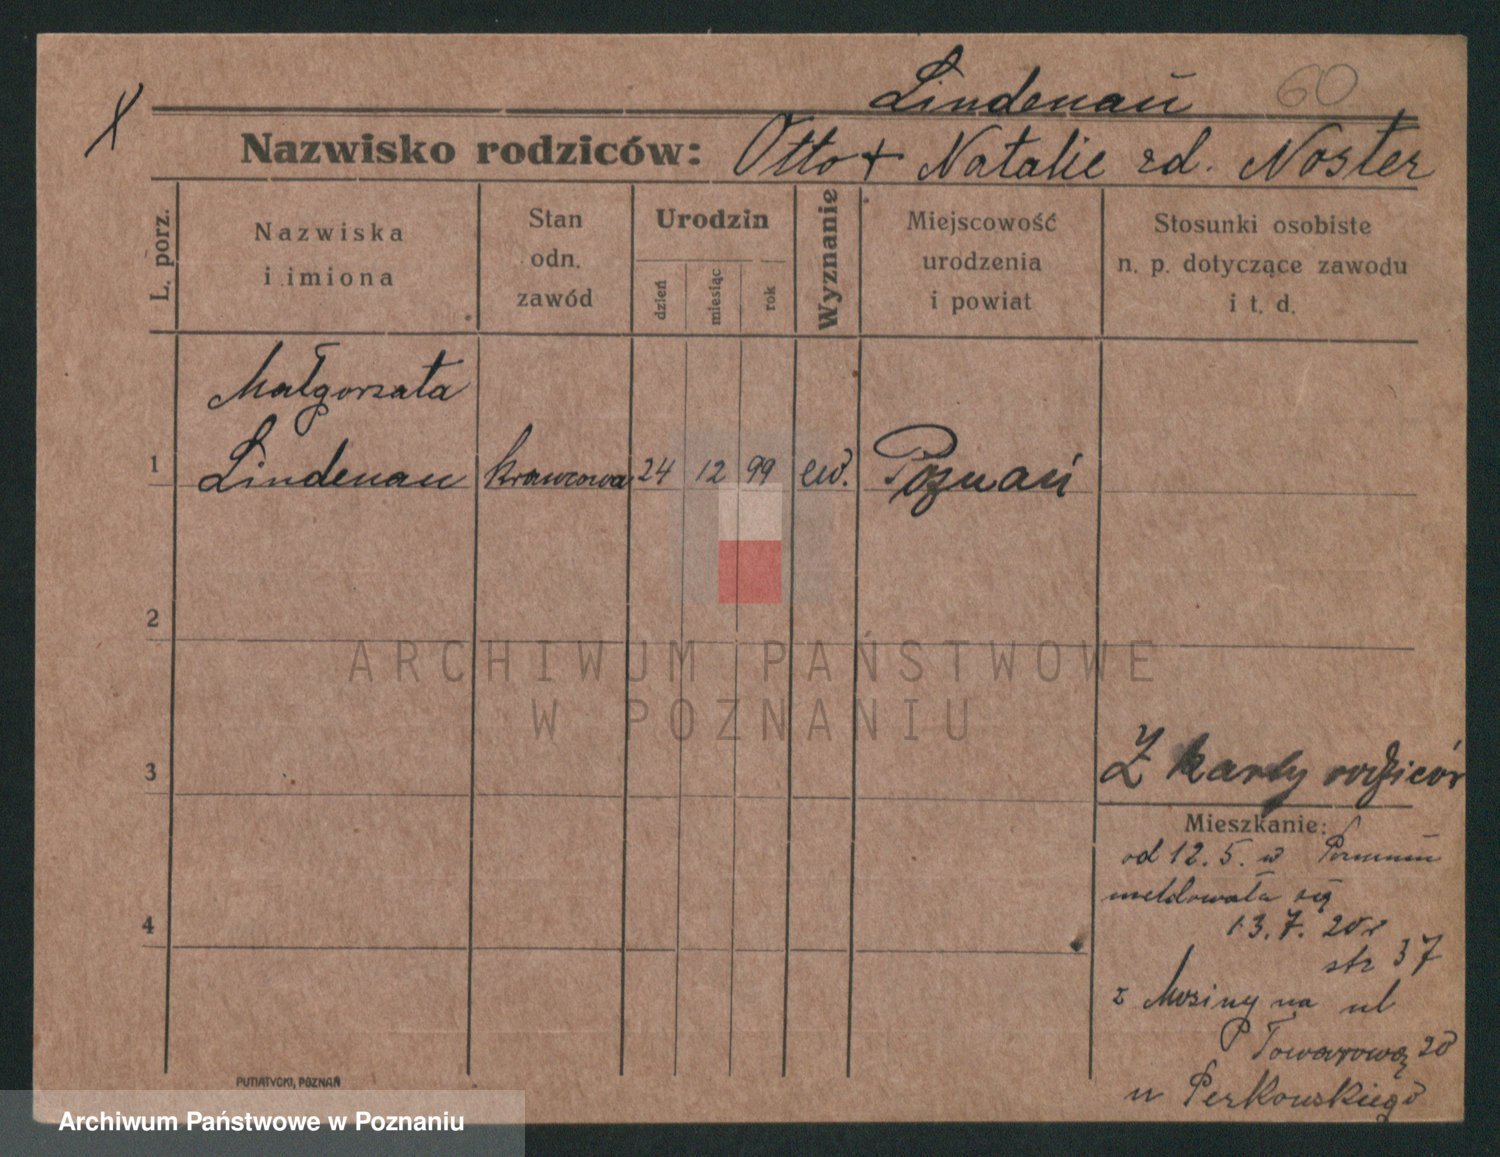 X
Lindenau 60
Nazwisko rodziców: Otto + Natalie zd. Noster
L. porz.
Nazwiska
i imiona
Stan
odn.
zawód
Urodzin
dzień
miesiąc
rok
Wyznanie
Miejscowość
urodzenia
i powiat
Stosunki osobiste
n. p. dotyczące zawodu
i t. d.
Małgorzata
1 Lindenau krawcowa 24 12 99 ew. Poznań
2
ARCHIWUM PAŃSTWOWE
W POZNANIU
3
Z karty rodziców
Mieszkanie:
od 12. 5. w Poznaniu
meldowała się
13. 7. 20 r
str 37
4
z Mosiny na ul
Towarową 20
u Perkowskiego
PUTIATYCKI, POZNAŃ
Archiwum Państwowe w Poznaniu